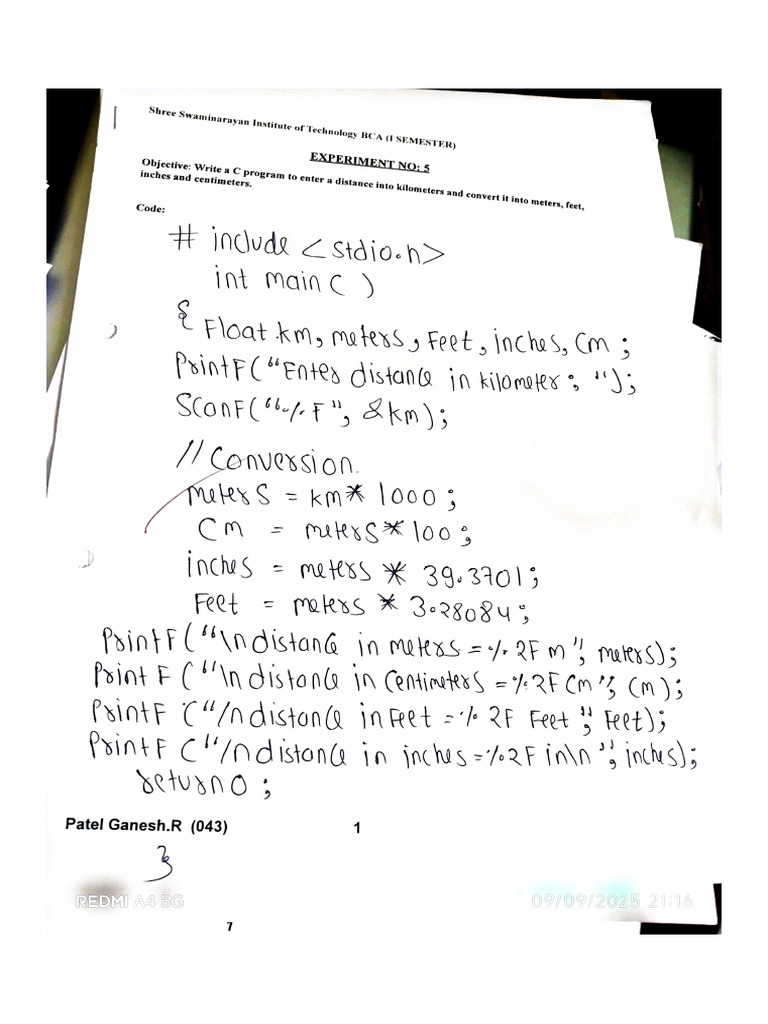 Shree Swaminarayan Institute of Technology BCA (I SEMESTER)
EXPERIMENT NO: 5
Objective: Write a C program to enter a distance into kilometers and convert it into meters, feet,
inches and centimeters.
Code:
# include <stdio.h>
int main ( )
{ Float km, meters, Feet, inches, Cm ;
PrintF("Enter distance in kilometer : ");
SconF("%F", &km);
// Conversion.
meters = km * 1000 ;
Cm = meters * 100 ;
inches = meters * 39.3701 ;
Feet = meters * 3.28084 ;
PrintF("\n distance in meters = %.2F m", meters);
PrintF("\n distance in Centimeters = %.2F Cm", Cm);
PrintF("/n distance in Feet = % 2F Feet", Feet);
PrintF("/n distance in inches = %.2F in\n", inches);
return 0 ;
Patel Ganesh.R (043) 1
}
REDMI A4 5G 09/09/2025 21:16
7